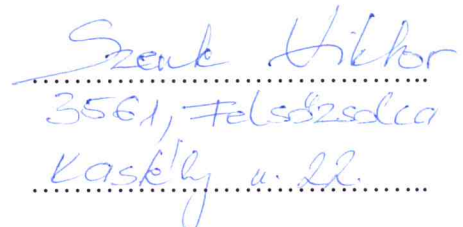 Szenk Viktor
3561, Felsőzsolca
Kastély u. 22.